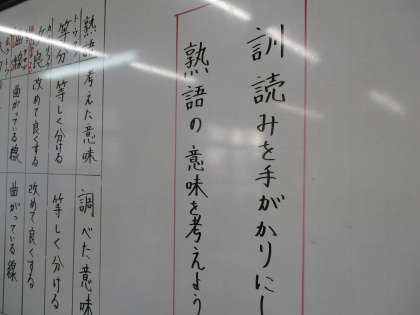 訓読みを手がかりにし
熟語の意味を考えよう
熟語
考えた意味
調べた意味
等分
等しく分ける
等しく分ける
改めて良くする
改めて良くする
曲線
曲がっている線
曲がっている線